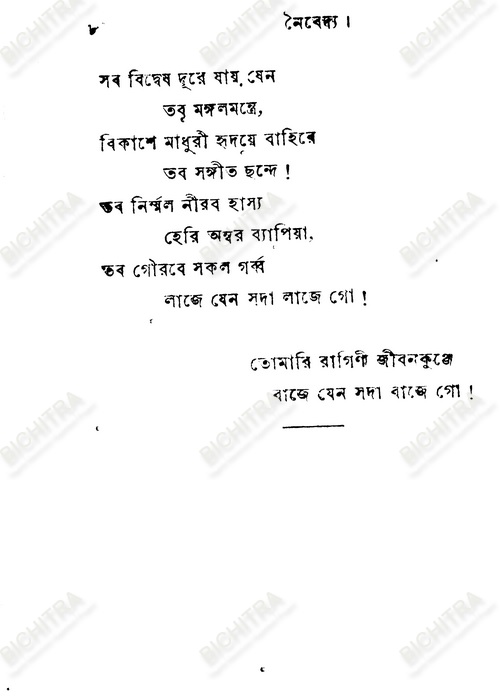 ৮ নৈবেদ্য ।
সব বিদ্বেষ দূরে যায় যেন
তব মঙ্গলমন্ত্রে,
বিকাশে মাধুরী হৃদয়ে বাহিরে
তব সঙ্গীত ছন্দে !
তব নির্ম্মল নীরব হাস্য
হেরি অম্বর ব্যাপিয়া,
তব গৌরবে সকল গর্ব্ব
লাজে যেন সদা লাজে গো !
তোমারি রাগিণী জীবনকুঞ্জে
বাজে যেন সদা বাজে গো !
BICHITRA